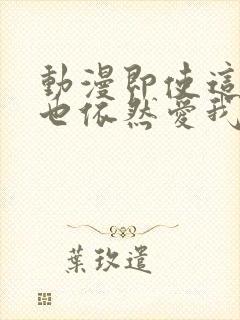 動漫即使這
也依然愛我
葉玫遣